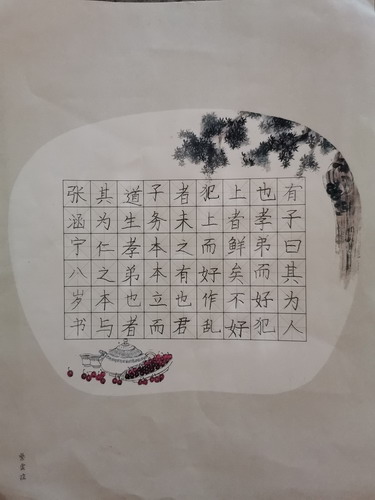 有子曰其为人
也孝弟而好犯
上者鲜矣不好
犯上而好作乱
者未之有也君
子务本本立而
道生孝弟也者
其为仁之本与
张涵宁八岁书